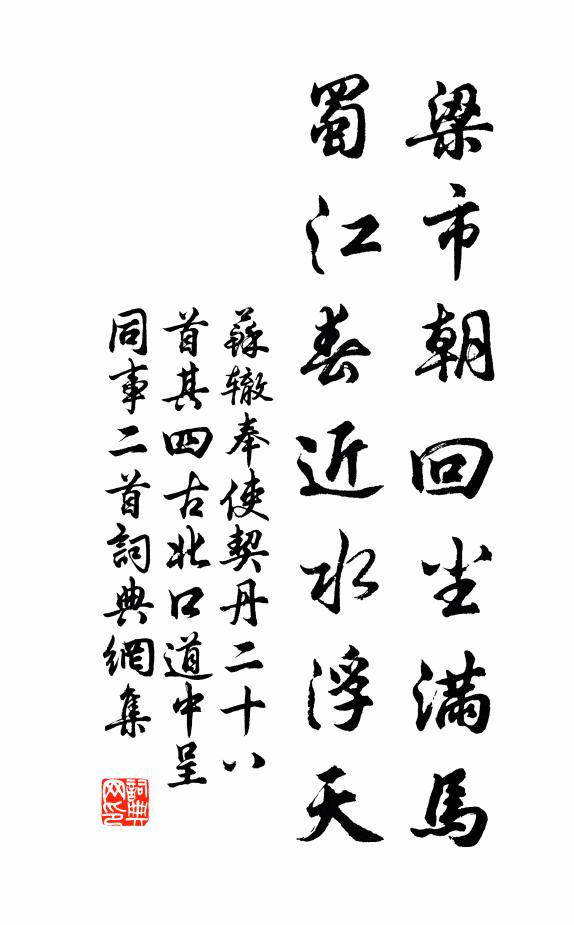 梁市朝回尘满馬
蜀江春近水浮天
蘇辙奉使契丹二十八
首其四古北口道中呈
同事二首詞典網集
詞典網印